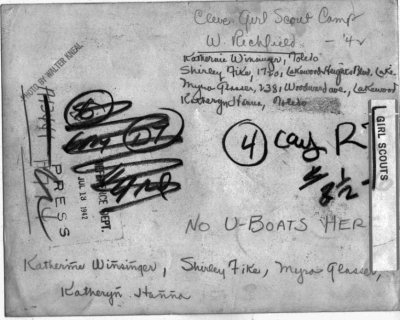 Cleve Girl Scout Camp
W. Richfield - '42
Katherine Winsinger, Toledo
Shirley Fike, 17601 Lakewood Heights Blvd, Lake.
Myra Glasser, 2381 Woodward ave, Lakewood
Katheryn Hanna, Toledo
PHOTO BY WALTER KNEAL
PRESS
JUL 18 1942
REFERENCE DEPT.
4
GIRL SCOUTS
NO U-BOATS HER
Katherine Winsinger, Shirley Fike, Myra Glasser,
Katheryn Hanna